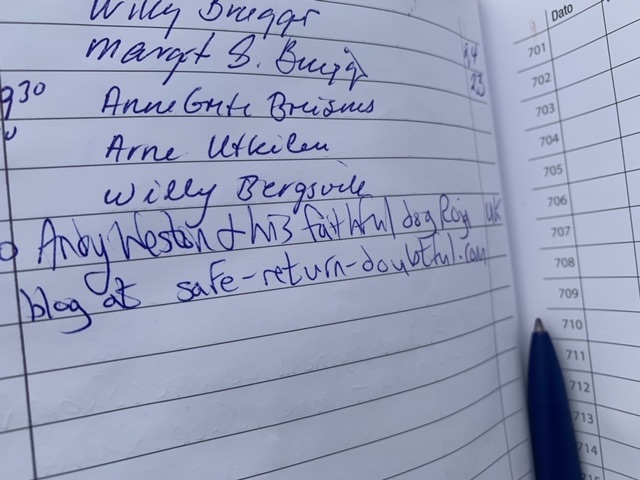 Willy
Margit S.
24
23
9 30
Anne Grete
Arne Utkilen
Willy Bergsvik
Andy Weston & his faithful dog Roja UK
blog at safe-return-doubtful.com
Dato
701
702
703
704
705
706
707
708
709
710
711
712
713
714